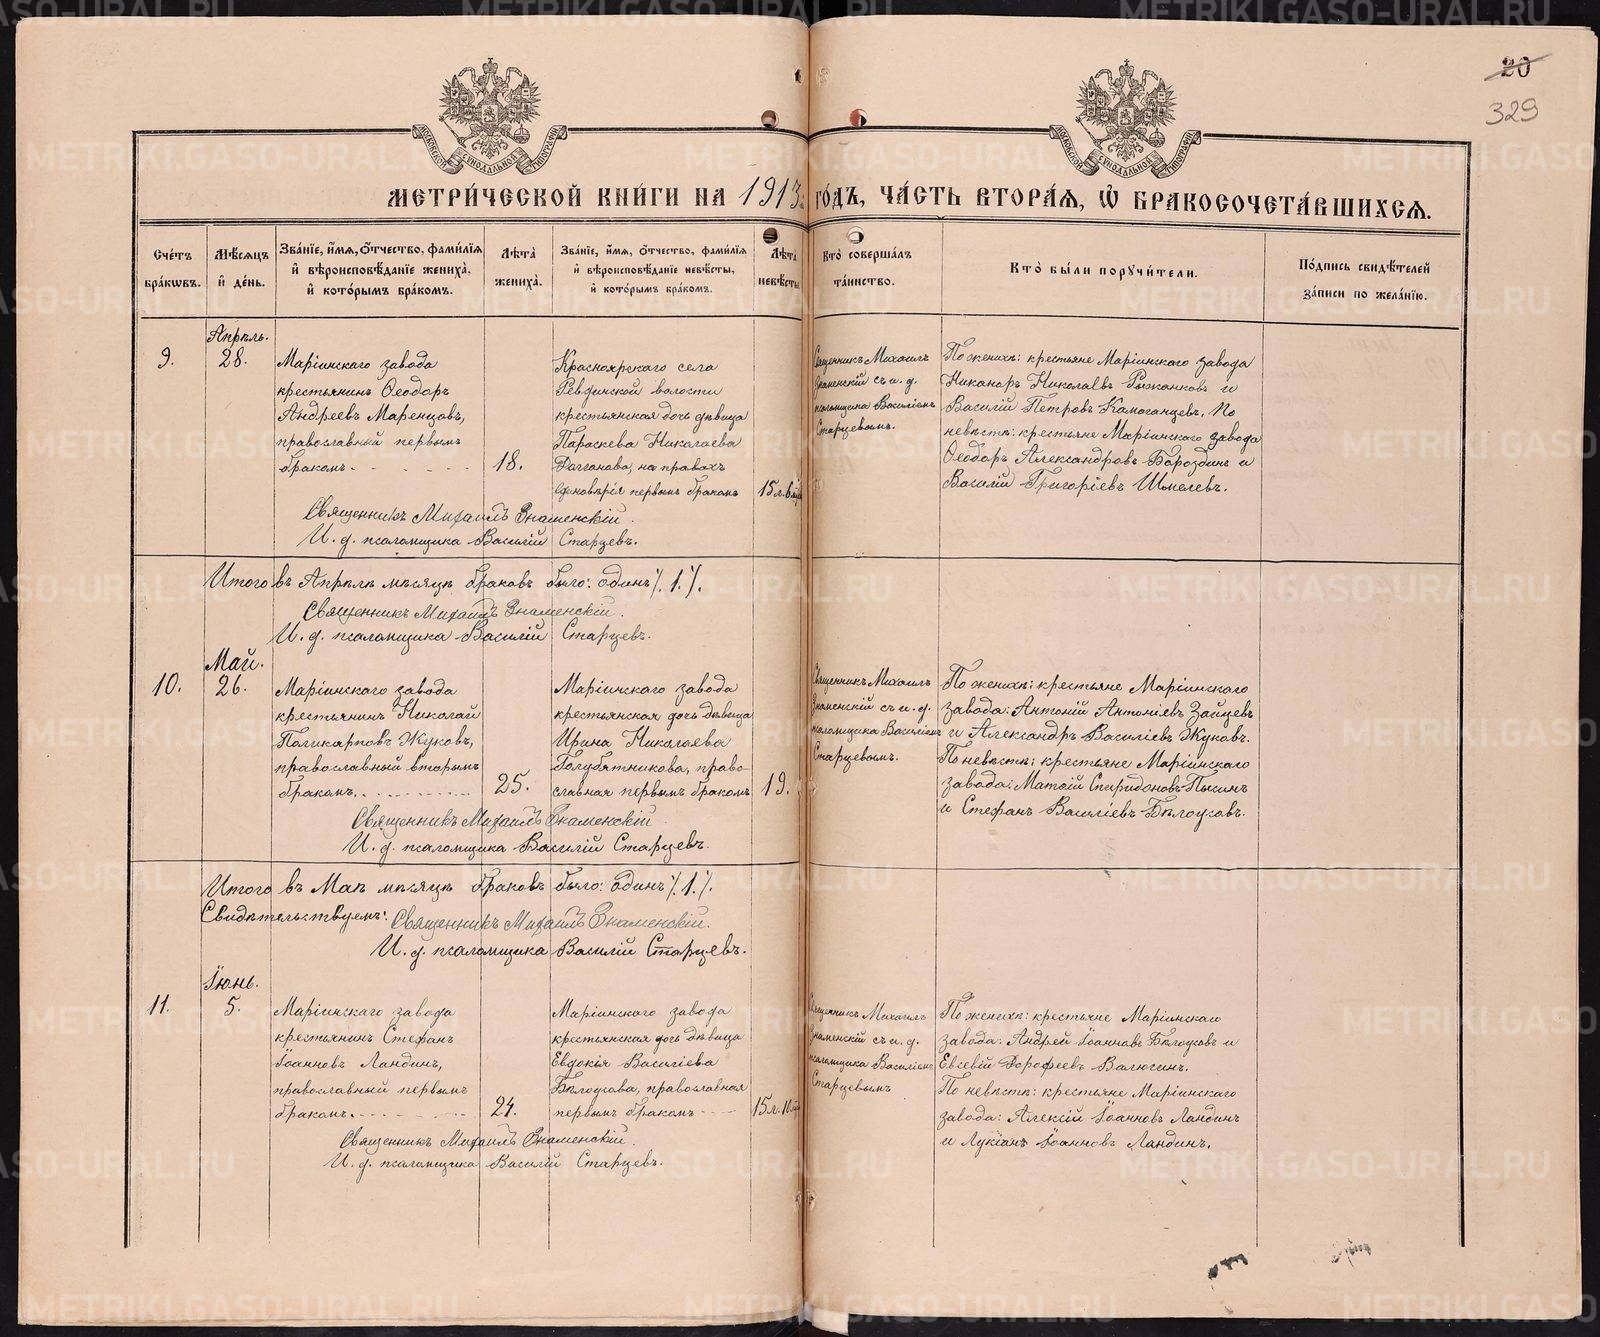 20
329
МОСКОВСКОЙ СѴНОДАЛЬНОЙ ТИПОГРАФІИ
МОСКОВСКОЙ СѴНОДАЛЬНОЙ ТИПОГРАФІИ
МЕТРИ́ЧЕСКОЙ КНИ́ГИ НА 1913 ГО́ДЪ, ЧА́СТЬ ВТОРА́Я, Ѡ҆ БРАКОСОЧЕТА́ВШИХСѦ.
Сче́тъ бра́кѡвъ.
Мѣ́сяцъ и҆ де́нь.
Зва́нїе, и҆́мя, ѻ҆́тчество, фами́лїя и҆ вѣроисповѣ́данїе жениха̀, и҆ кото́рымъ бра́комъ.
Лѣ́та жениха̀.
Зва́нїе, и҆́мя, ѻ҆́тчество, фами́лїя и҆ вѣроисповѣ́данїе невѣ́сты, и҆ кото́рымъ бра́комъ.
Лѣ́та невѣ́сты
Кто̀ соверша́лъ та́инство.
Кто̀ бы́ли порꙋчи́тели.
По́дпись свидѣ́телей за́писи по жела́нїю.
Апрѣль.
9.
28.
Маріинскаго завода
крестьянинъ Ѳеодоръ
Андреевъ Маренцовъ,
православный первымъ
бракомъ
18.
Красноярскаго села
Ревдинской волости
крестьянская дочь дѣвица
Параскева Николаева
на правахъ
единовѣрія первымъ бракомъ
15 л.
Священникъ Михаилъ
Знаменскій съ и. д.
псаломщика Василіемъ
Старцевымъ.
По женихѣ: крестьяне Маріинскаго завода
Никаноръ Николаевъ Рыжанковъ и
Василій Петровъ Камаганцевъ, по
невѣстѣ: крестьяне Маріинскаго завода
Ѳеодоръ Александровъ Бороздинъ и
Василій Григоріевъ Шмелевъ.
Священникъ Михаилъ Знаменскій.
И. д. псаломщика Василій Старцевъ.
Итого въ Апрѣлѣ мѣсяцѣ браковъ было: одинъ ٪ 1. ٪.
Священникъ Михаилъ Знаменскій.
И. д. псаломщика Василій Старцевъ.
Май.
10.
26.
Маріинскаго завода
крестьянинъ Николай
Поликарповъ Жуковъ,
православный вторымъ
бракомъ.
25.
Маріинскаго завода
крестьянская дочь дѣвица
Ирина Николаева
Голубятникова, право-
славная первымъ бракомъ
19.
Священникъ Михаилъ
Знаменскій съ и. д.
псаломщика Василіемъ
Старцевымъ.
По женихѣ: крестьяне Маріинскаго
завода: Антоній Антоніевъ Зайцевъ
и Александръ Василіевъ Жуковъ.
По невѣстѣ: крестьяне Маріинскаго
завода: Матѳій Спиридоновъ Пысинъ
и Стефанъ Василіевъ Бѣлоусовъ.
Священникъ Михаилъ Знаменскій
И. д. псаломщика Василій Старцевъ.
Итого въ Маѣ мѣсяцѣ браковъ было: одинъ ٪ 1. ٪.
Свидѣтельствуемъ: Священникъ Михаилъ Знаменскій.
И. д. псаломщика Василій Старцевъ.
Іюнь.
11.
5.
Маріинскаго завода
крестьянинъ Стефанъ
Іоанновъ Ландинъ,
православный первымъ
бракомъ.
24.
Маріинскаго завода
крестьянская дочь дѣвица
Евдокія Василіева
Бѣлоусова, православная
первымъ бракомъ
15 л. 10
Священникъ Михаилъ
Знаменскій съ и. д.
псаломщика Василіемъ
Старцевымъ
По женихѣ: крестьяне Маріинскаго
завода: Андрей Іоанновъ Бѣлоусовъ и
Евсевій Дорофеевъ Валюгинъ.
По невѣстѣ: крестьяне Маріинскаго
завода: Алексій Іоанновъ Ландинъ
и Лукіанъ Іоанновъ Ландинъ.
Священникъ Михаилъ Знаменскій.
И. д. псаломщика Василій Старцевъ.
METRIKI.GASO-URAL.RU